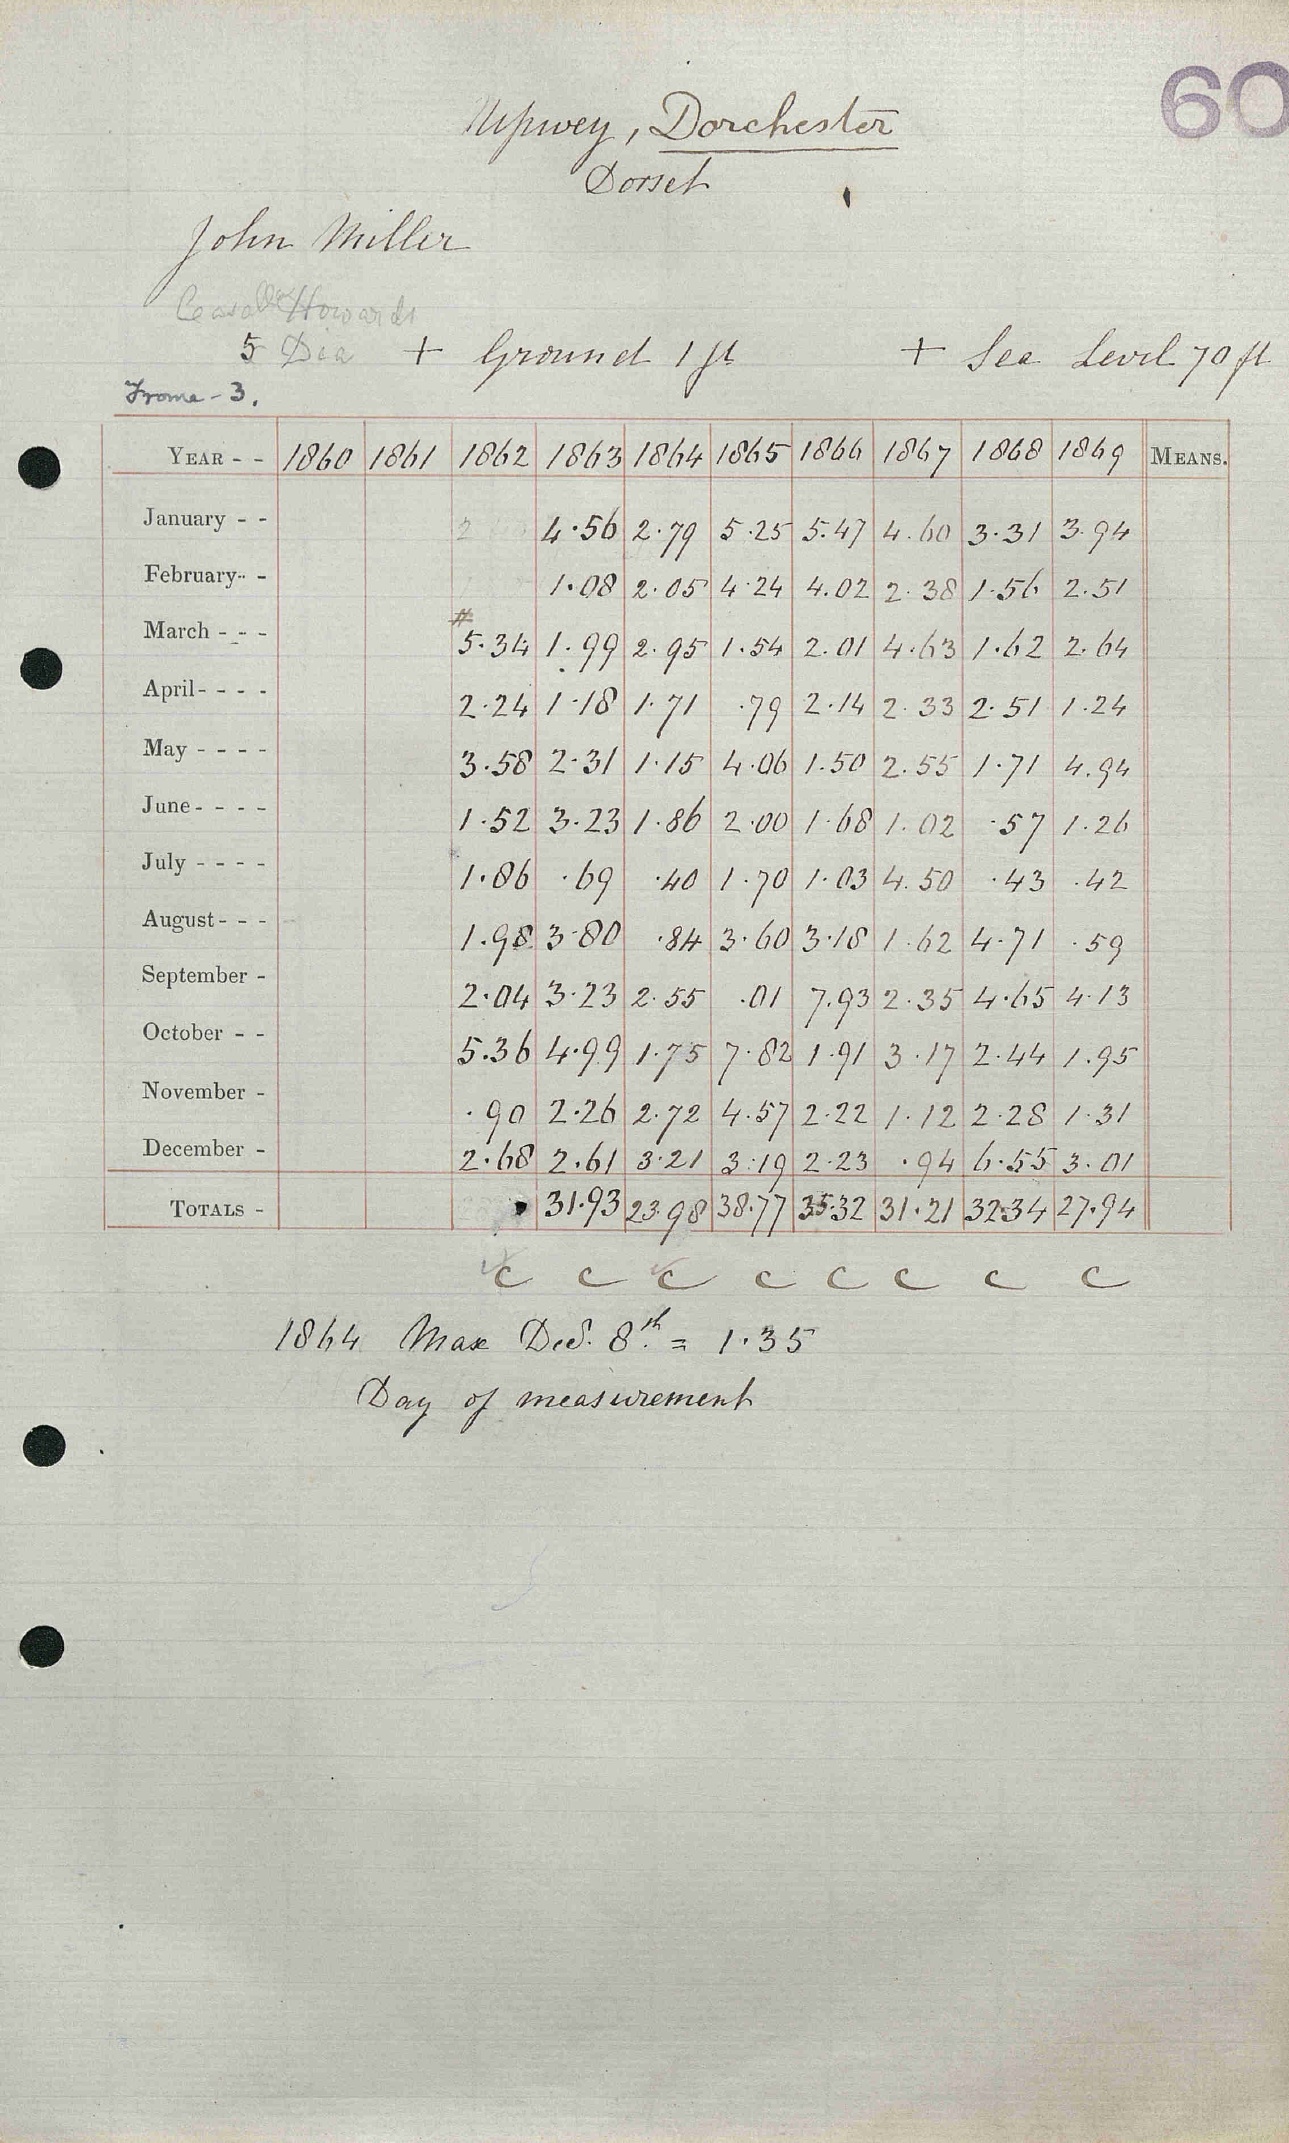 60
Upwey, Dorchester
Dorset
John Miller
Howards
5 Dia + Ground 1 ft + Sea Level 70 ft
Frome - 3.
YEAR - - 1860 1861 1862 1863 1864 1865 1866 1867 1868 1869 MEANS.
January - - 2 4.56 2.79 5.25 5.47 4.60 3.31 3.94
February - - 1.08 2.05 4.24 4.02 2.38 1.56 2.51
#
March - - - 5.34 1.99 2.95 1.54 2.01 4.63 1.62 2.64
April - - - - 2.24 1.18 1.71 .79 2.14 2.33 2.51 1.24
May - - - - 3.58 2.31 1.15 4.06 1.50 2.55 1.71 4.94
June - - - - 1.52 3.23 1.86 2.00 1.68 1.02 .57 1.26
July - - - - 1.86 .69 .40 1.70 1.03 4.50 .43 .42
August - - - 1.98 3.80 .84 3.60 3.18 1.62 4.71 .59
September - 2.04 3.23 2.55 .01 7.93 2.35 4.65 4.13
October - - 5.36 4.99 1.75 7.82 1.91 3.17 2.44 1.95
November - .90 2.26 2.72 4.57 2.22 1.12 2.28 1.31
December - 2.68 2.61 3.21 3.19 2.23 .94 6.55 3.01
TOTALS - 31.93 23.98 38.77 35.32 31.21 32.34 27.94
c c c c c c c c
1864 Max Dec. 8th = 1.35
Day of measurement